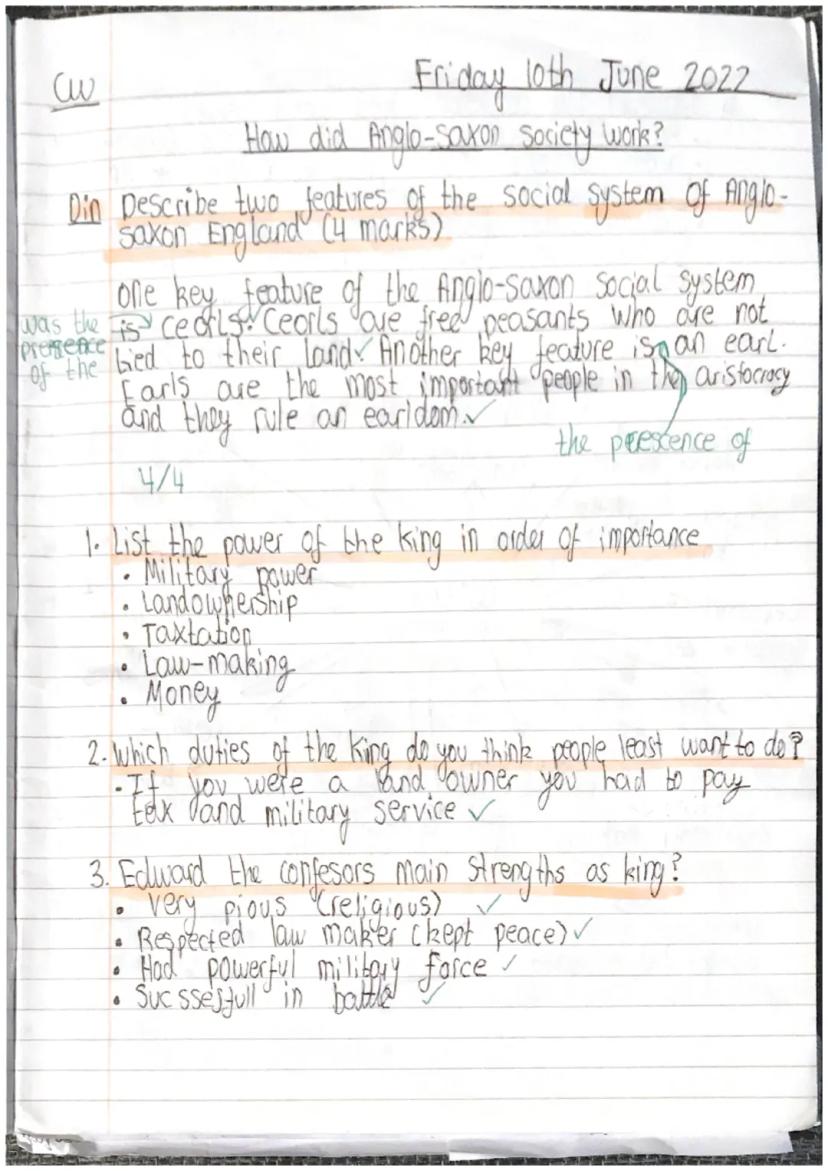 CW
Friday 10th June 2022
How did Anglo-Saxon society work?
Din Describe two features of the social system of Anglo-
Saxon England (4 marks)
One key feature of the Anglo-Saxon social system
was the
is ceorls. Ceorls are free peasants who are not
presence
tied to their land✓ Another key feature is an earl.
of the
Earls are the most important people in the aristocracy
and they rule an earldom.✓
the prescence of
4/4
1. List the power of the king in order of importance
• Military power
• Landownership
• Taxtation
• Law-making
• Money
2. Which duties of the king do you think people least want to do?
- If you were a land owner you had to pay
tax and military service ✓
3. Edward the confesors main strengths as king?
• Very pious (religious) ✓
• Respected law maker (kept peace) ✓
• Had powerful military force ✓
• Sucssesfull in battle ✓